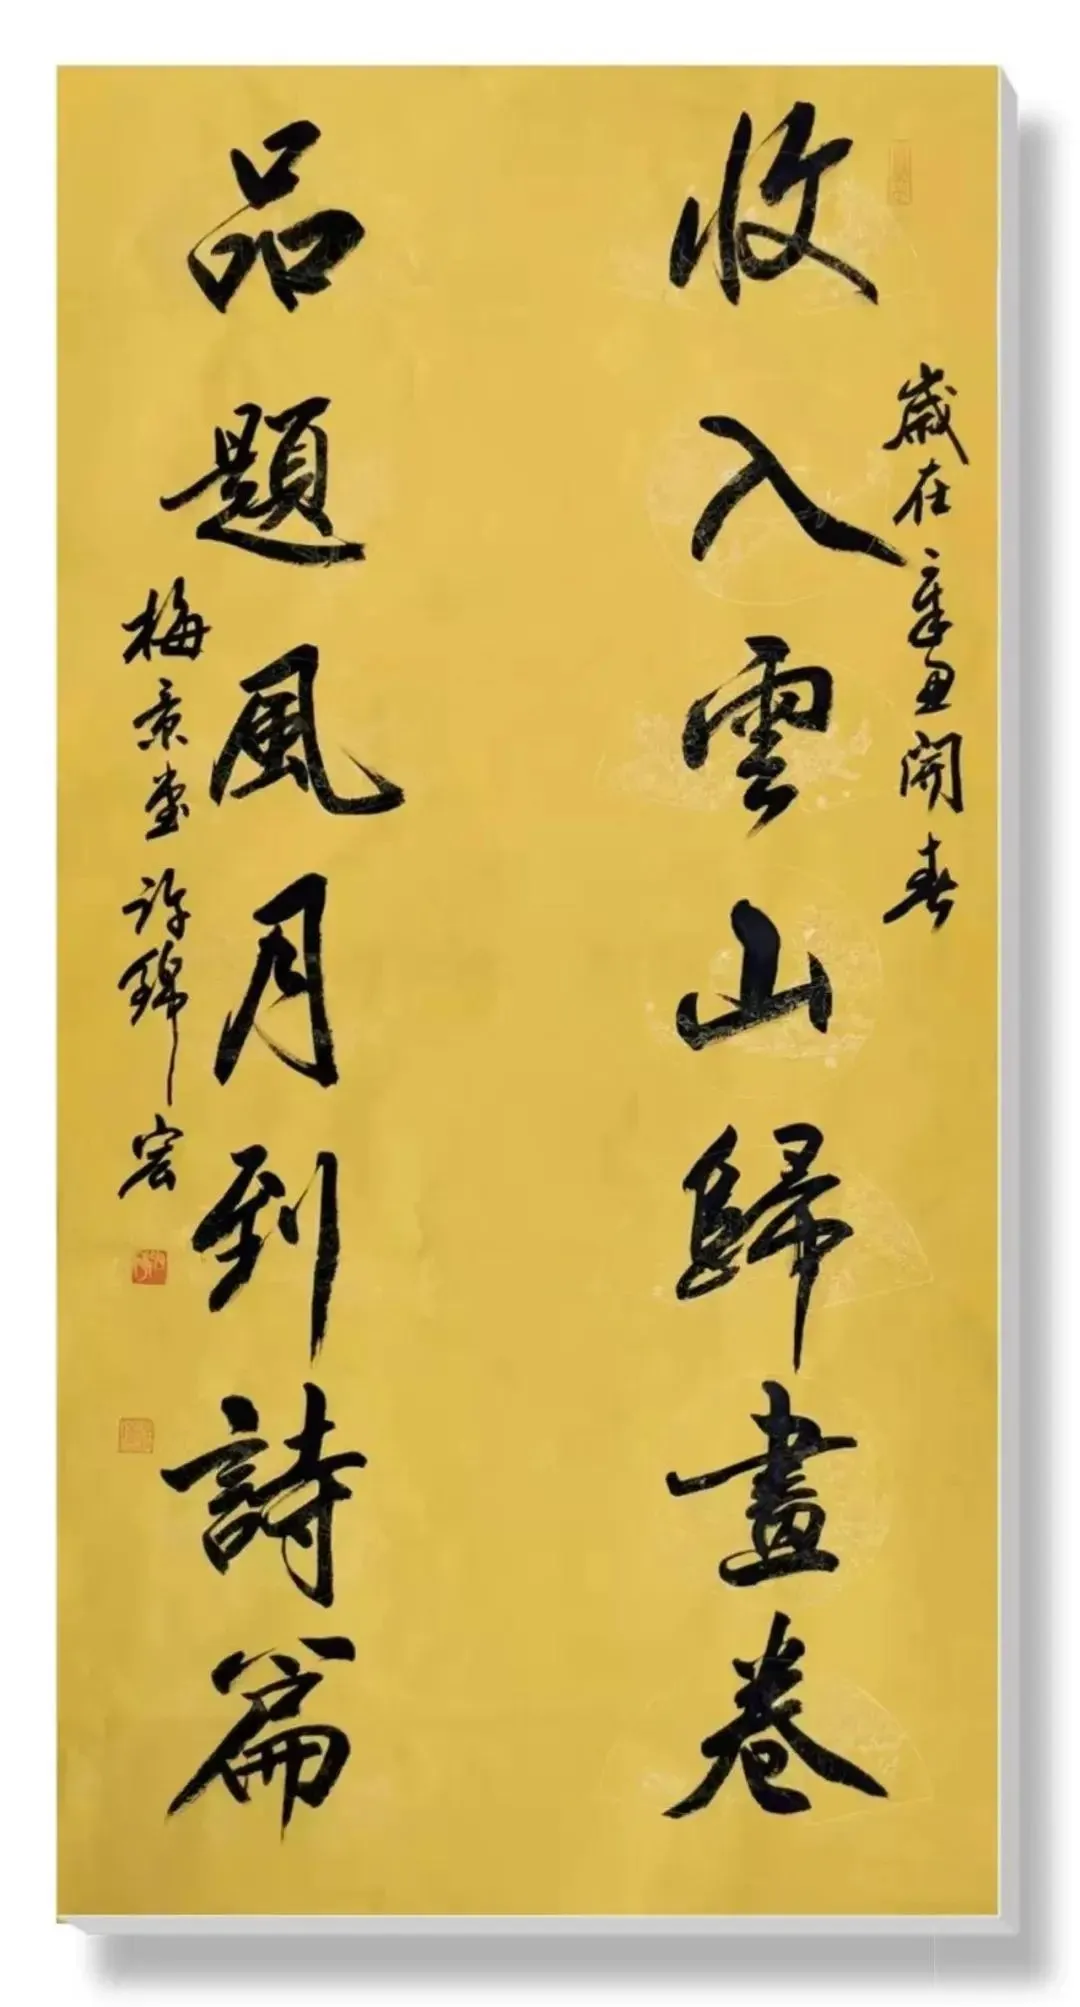 收入雲山歸畫卷
歲在辛丑開春
品題風月到詩篇
梅景堂許錦宏